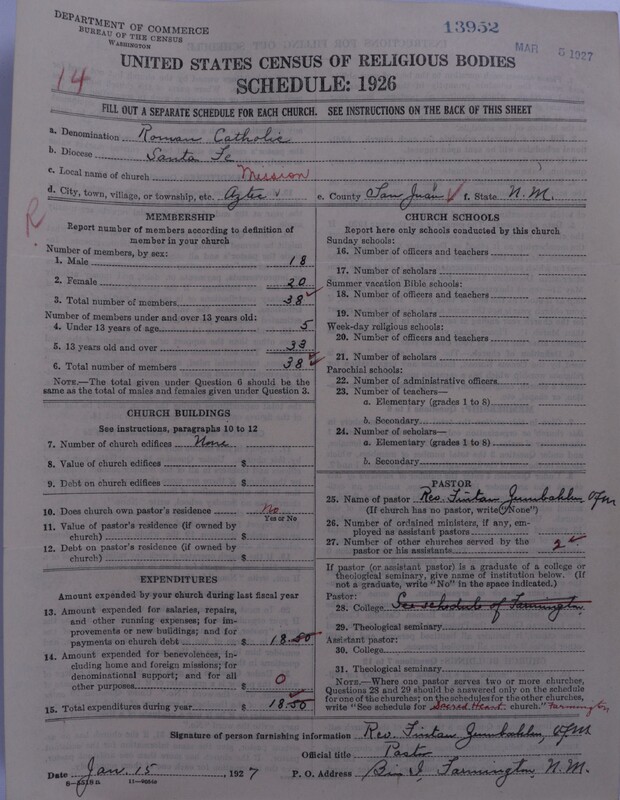 DEPARTMENT OF COMMERCE
BUREAU OF THE CENSUS
WASHINGTON
13952
MAR 5 1927
UNITED STATES CENSUS OF RELIGIOUS BODIES
SCHEDULE: 1926
14
FILL OUT A SEPARATE SCHEDULE FOR EACH CHURCH. SEE INSTRUCTIONS ON THE BACK OF THIS SHEET
a. Denomination Roman Catholic
b. Diocese Santa Fe
c. Local name of church Mission
d. City, town, village, or township, etc. Aztec e. County San Juan f. State N.M.
R
MEMBERSHIP
Report number of members according to definition of
member in your church
Number of members, by sex:
1. Male 18
2. Female 20
3. Total number of members 38
Number of members under and over 13 years old:
4. Under 13 years of age 5
5. 13 years old and over 33
6. Total number of members 38
NOTE.—The total given under Question 6 should be
same as the total of males and females given under Question 3.
CHURCH BUILDINGS
See instructions, paragraphs 10 to 12
7. Number of church edifices None
8. Value of church edifices $
9. Debt on church edifices $
10. Does church own pastor's residence No
Yes or No
11. Value of pastor's residence (if owned by
church) $
12. Debt on pastor's residence (if owned by
church) $
EXPENDITURES
Amount expended by your church during last fiscal year
13. Amount expended for salaries, repairs,
and other running expenses; for im-
provements or new buildings; and for
payments on church debt $ 18.50
14. Amount expended for benevolences, in-
cluding home and foreign missions; for
denominational support; and for all
other purposes $ 0
15. Total expenditures during year $ 18.50
CHURCH SCHOOLS
Report here only schools conducted by this church
Sunday schools:
16. Number of officers and teachers
17. Number of scholars
Summer vacation Bible schools:
18. Number of officers and teachers
19. Number of scholars
Week-day religious schools:
20. Number of officers and teachers
21. Number of scholars
Parochial schools:
22. Number of administrative officers
23. Number of teachers—
a. Elementary (grades 1 to 8)
b. Secondary
24. Number of scholars—
a. Elementary (grades 1 to 8)
b. Secondary
PASTOR
25. Name of pastor Rev. Fintan Zumbahlen, OFM
(If church has no pastor, write "None")
26. Number of ordained ministers, if any, em-
ployed as assistant pastors
27. Number of other churches served by the
pastor or his assistants 2
If pastor (or assistant pastor) is a graduate of a college or
theological seminary, give name of institution below. (If
not a graduate, write "No" in the space indicated.)
Pastor:
28. College See schedule of Farmington
29. Theological seminary
Assistant pastor:
30. College
31. Theological seminary
NOTE.—Where one pastor serves two or more churches,
Questions 28 and 29 should be answered only on the schedule
for one of the churches; on the schedules for the other churches,
write "See schedule for Sacred Heart church." Farmington
Signature of person furnishing information Rev. Fintan Zumbahlen, OFM
Official title Pastor
Date Jan. 15 1927 P. O. Address Farmington, N.M.